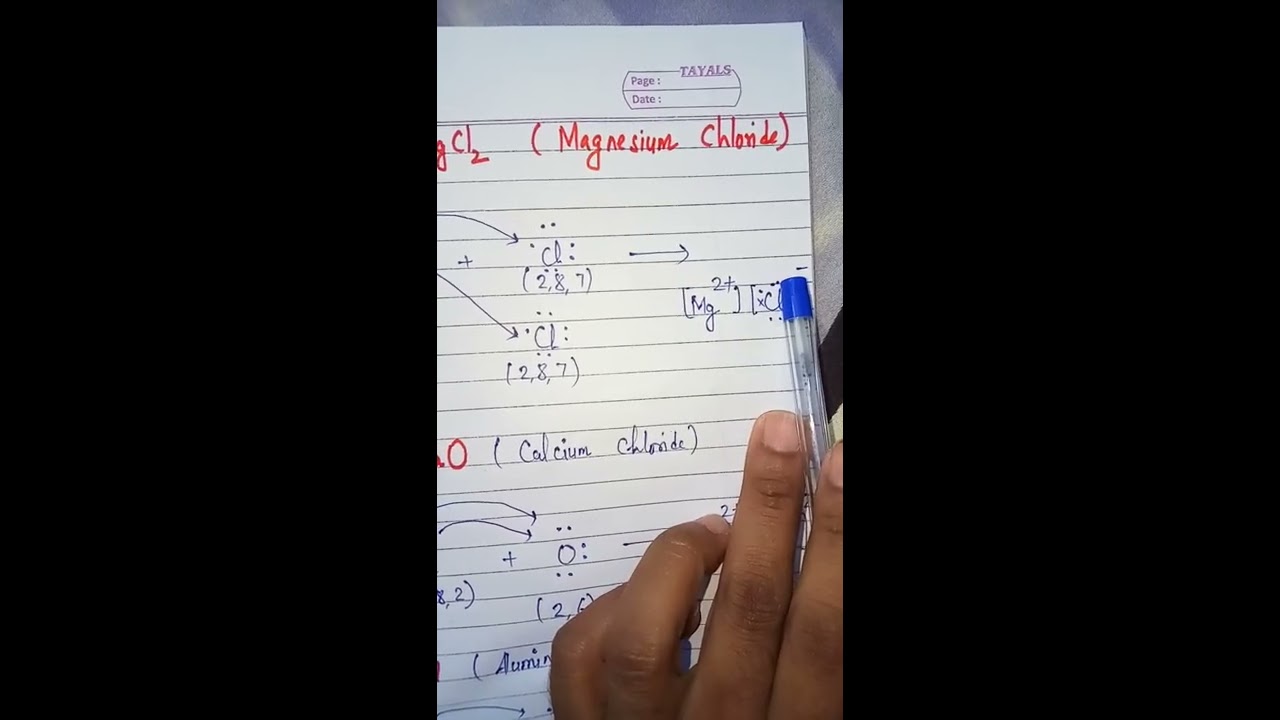 TAYALS
Page :
Date :
gCl2 ( Magnesium Chloride)
+ Cl →
(2,8,7)
[Mg2+] [×Cl -
Cl
(2,8,7)
O ( Calcium Chloride)
2+
+ O
8,2)
(2,6
( Alumin